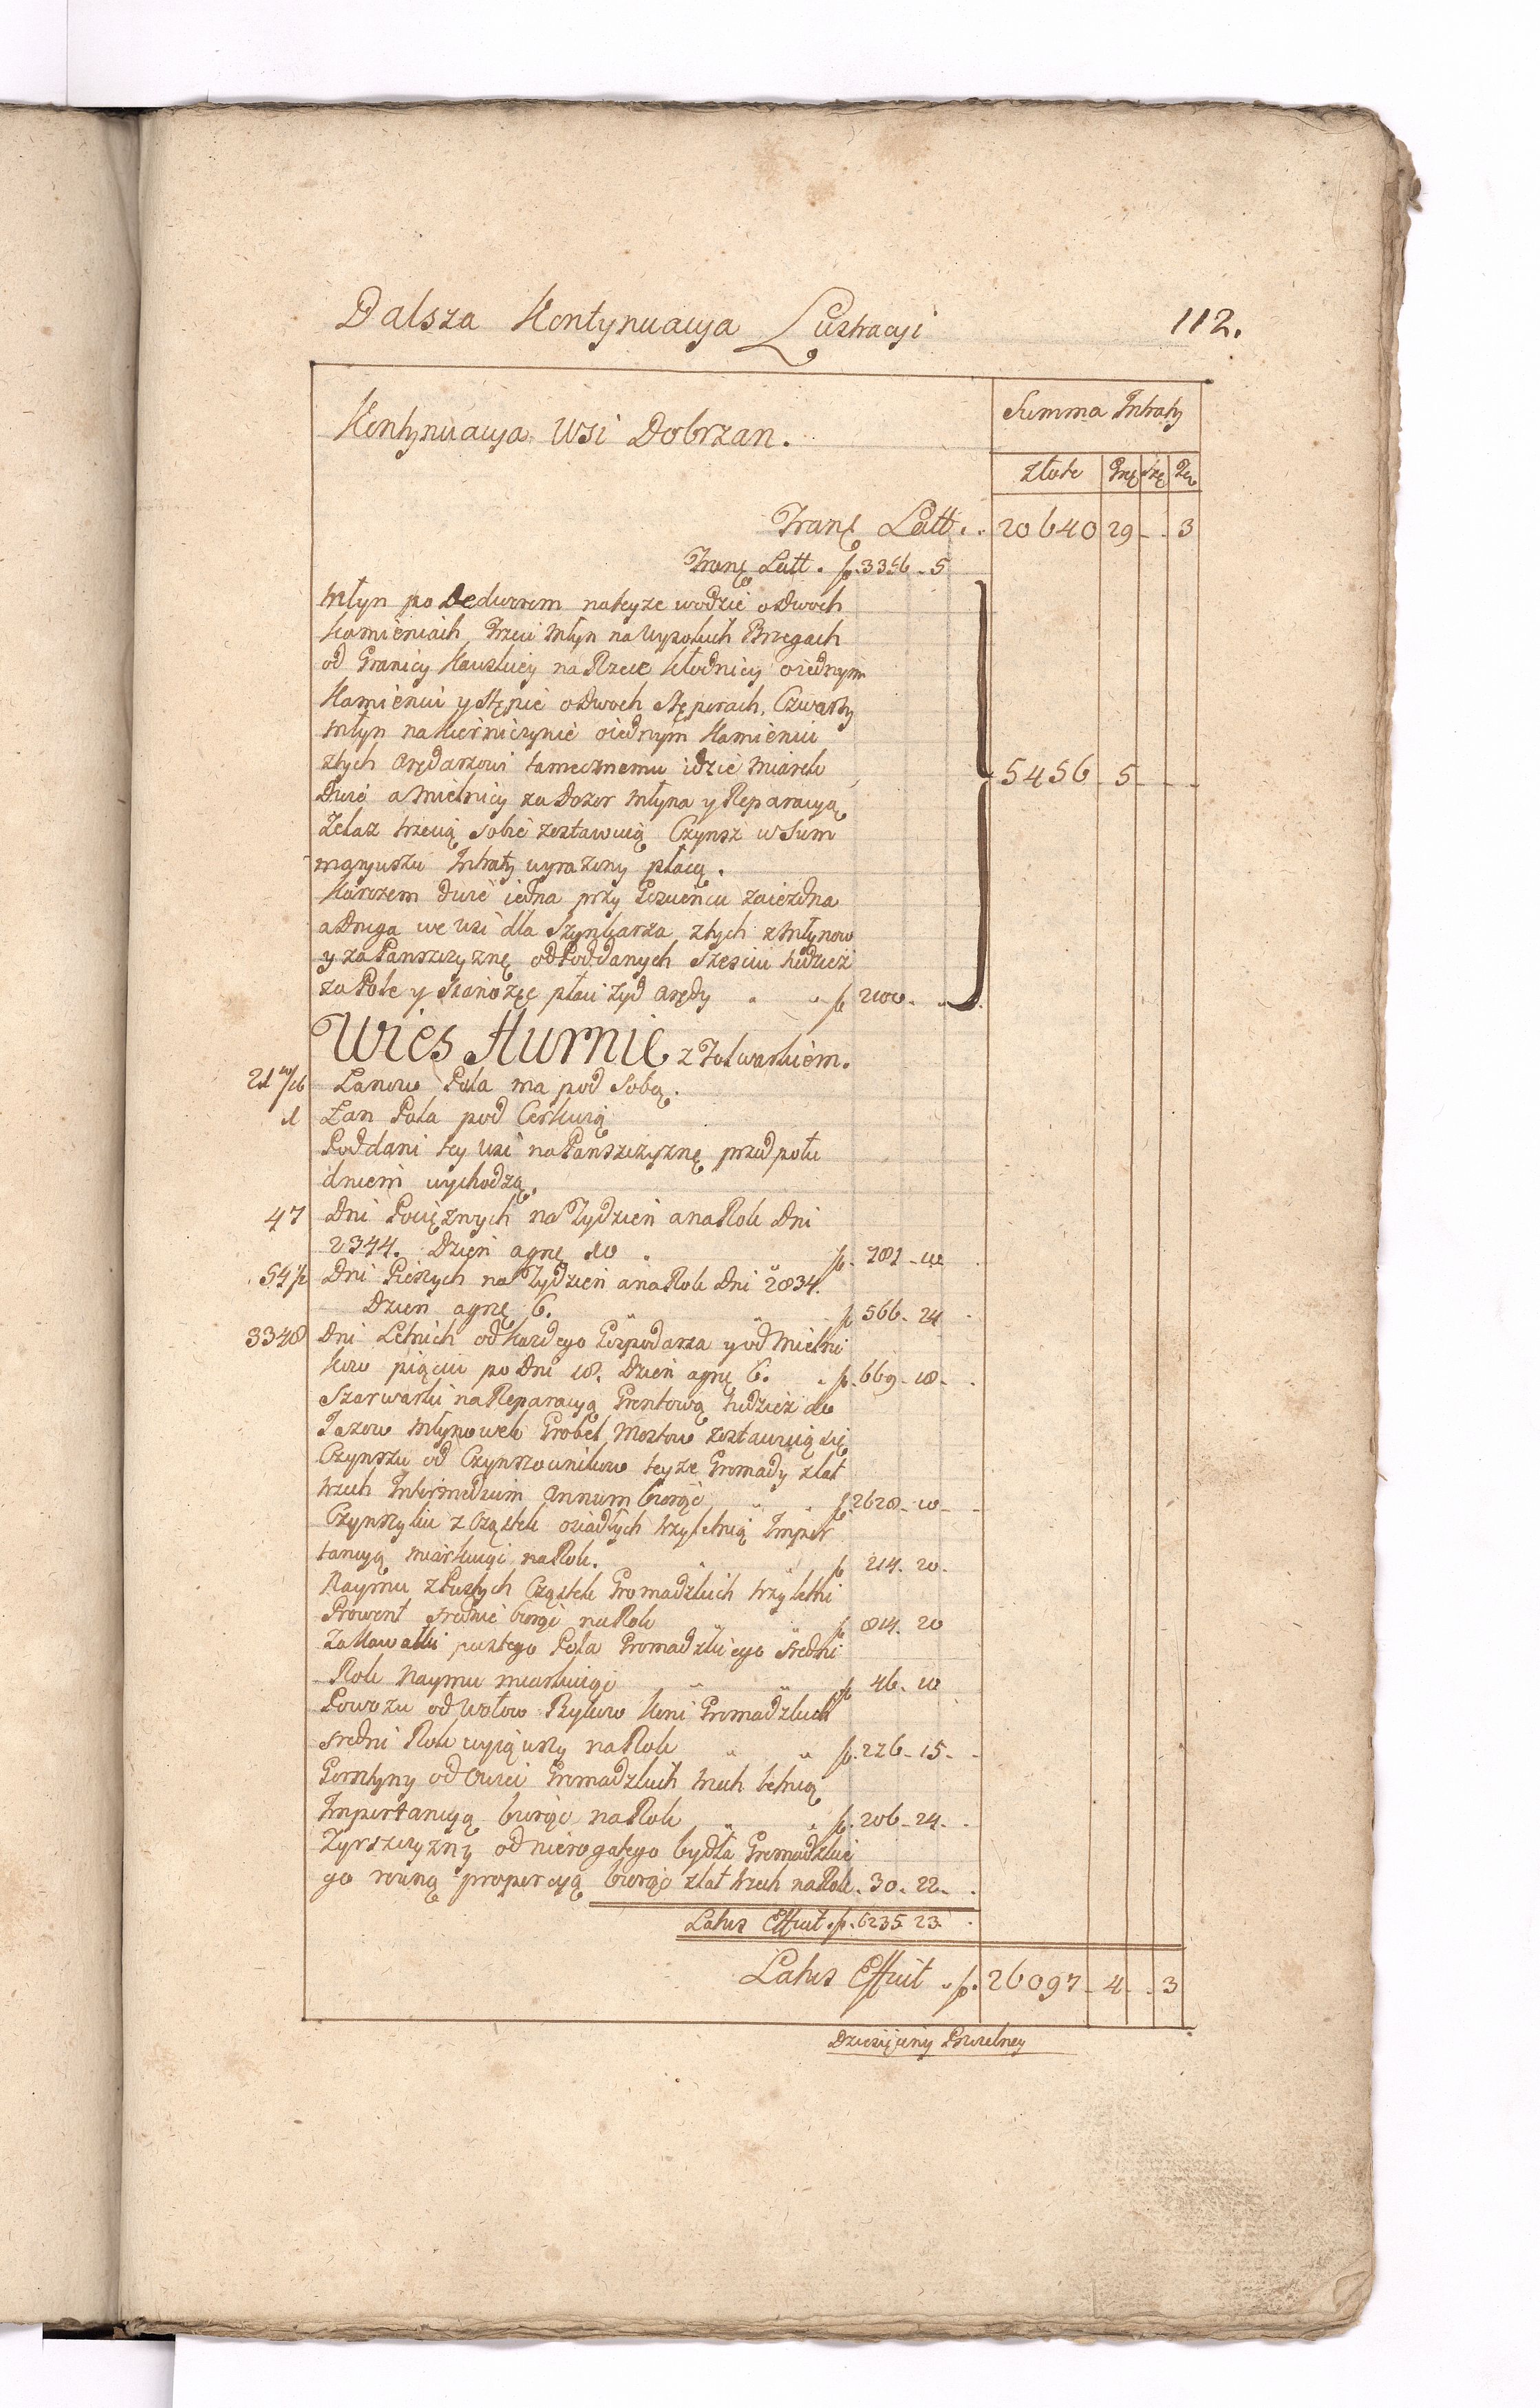 Dalsza Kontynuacya Lustracyi 112.
Kontynuacya Wsi Dobrzan.
Summa Intraty
Złote Grę Szę
Tranſ Latt. 20640 29 - - 3
Tranſ Latt. f. 3356 - 5
Młyn po Dedwornem nateyze wodzie o Dwoch
Kamieniach, Trzeci Młyn na Wysokich Brzegach
od Granicy na Rzece Kłodnicy oiednym
Kamieniu y Stępie o Dwoch Stęporach, Czwarty
Młyn na Kierniczynie oiednym Kamieniu
ztych Arędarzowi tamecznemu idzie Miarek
Dwie a Mielnicy za Dozor Młyna y Reparacyą
Zelaz trzecią sobie zostawuią Czynsz w Sum
maryuszu Intraty wyrazony płacą.
5456 - 5 - -
Karczem dwie iedna przy Goscieńcu zaiezdna
a Druga we Wsi dla Szynkarza ztych z Młynow
y za Panszczyznę od Poddanych Szesciu tudziez
za Pole y Sianozęć płaci Zyd Arędy f. 2100. -
Wies Hurnie z Folwarkiem.
21 10/16 Łanow Pola ma pod Sobą.
1 Łan Pola pod Cerkwią
Poddani tey Wsi na Panszczyznę przed połu
dniem wychodzą.
47 Dni Ciężnych na Tydzien a na Rok Dni
2344. Dzień agrę 10. f. 781 - 10
54 1/2 Dni Pieszych na Tydzien a na Rok Dni 2834.
Dzien agrę 6. f. 566 - 24
3348 Dni Letnich od kazdego Gospodarza y od Mielni
kow pięciu po Dni 18. Dzień agrę 6. f. 669 - 18 -
Szarwarki na Reparacyą Grontową tudziez do
Jazow Młynowek Grobel, Mostow zostawuią się
Czynszu od Czynszownikow teyze Gromady z lat
trzech Intermedium Annum biorąc f. 2628 - 10 -
Czynszyku z Cząstek osiadłych trzyletnią Impor
tancyą miarkuiąc na Rok. f. 214. 20.
Naymu z Pustych Cząstek Gromadzkich trzyletni
Prowent srednie biorąc na Rok f. 814. 20
Zakawałki pustego Pola Gromadzkiego sredni
Rok Naymu miarkuiąc f. 46. 10
Powozu od Wołow Bykow Koni Gromadzkich
sredni Rok wyiąwszy na Rok f. 226 - 15 -
Gorsztyny od Owiec Gromadzkich trzech letnią
Importancyą biorąc na Rok f. 206 - 24 -
Zyrszczyzny od nierogatego bydła Gromadzkie
go rowną proporcyą biorąc z lat trzech na Rok. 30 - 22 -
Latus Effuit f. 6235 23
Latus Effuit f. 26097 - 4 - - 3
Dziesięciny Pszczelney